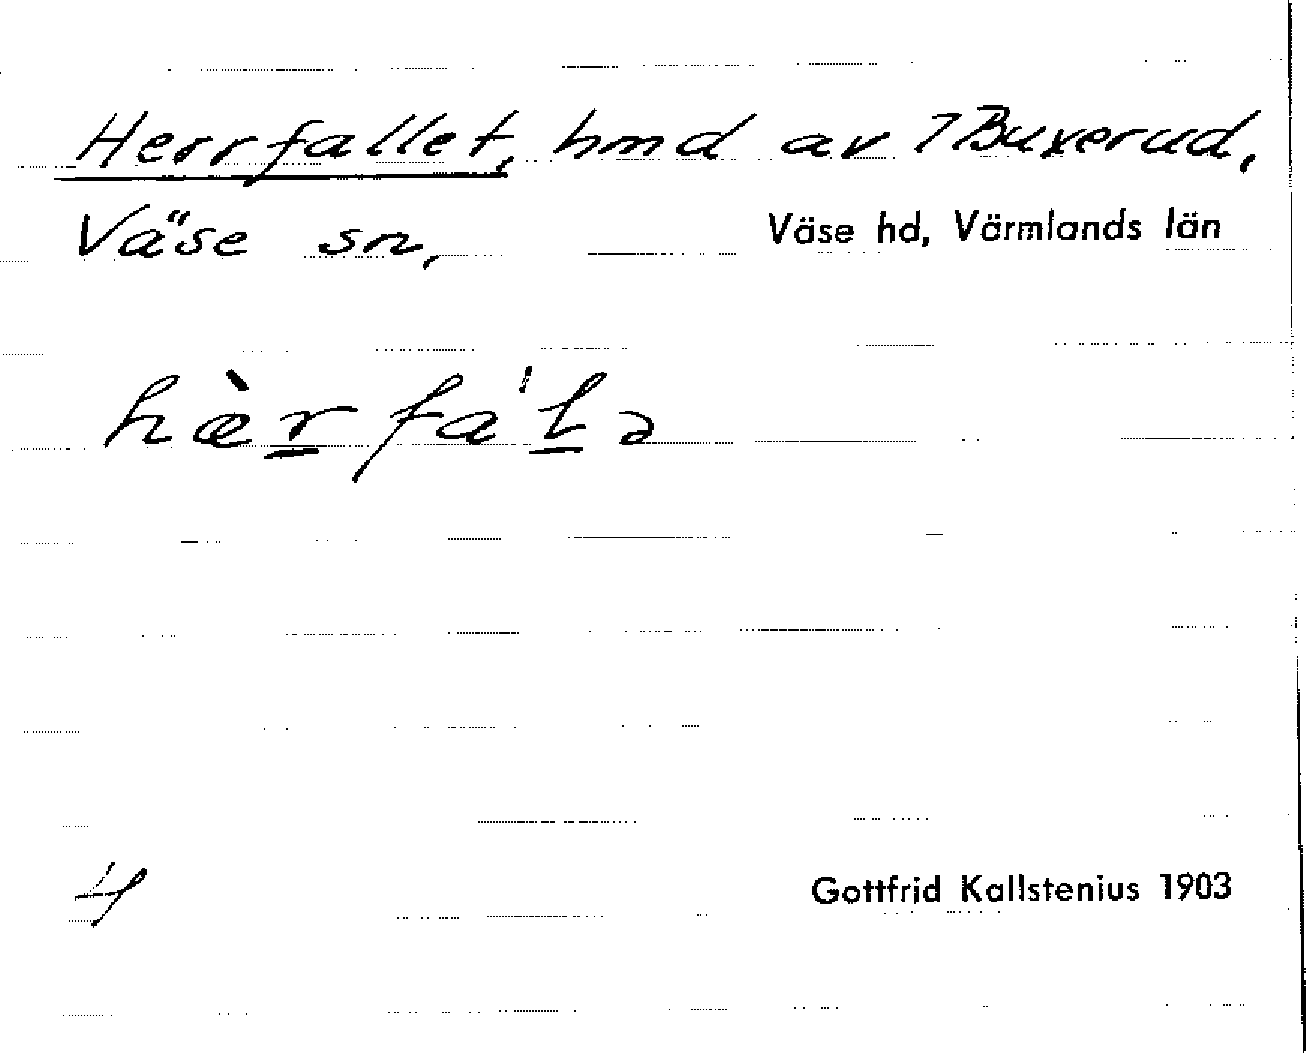 Herrfallet, hmd av 7 Buxerud,
Väse sn, Väse hd, Värmlands län
hæ̀r̲fa'l̲ə
4
Gottfrid Kallstenius 1903